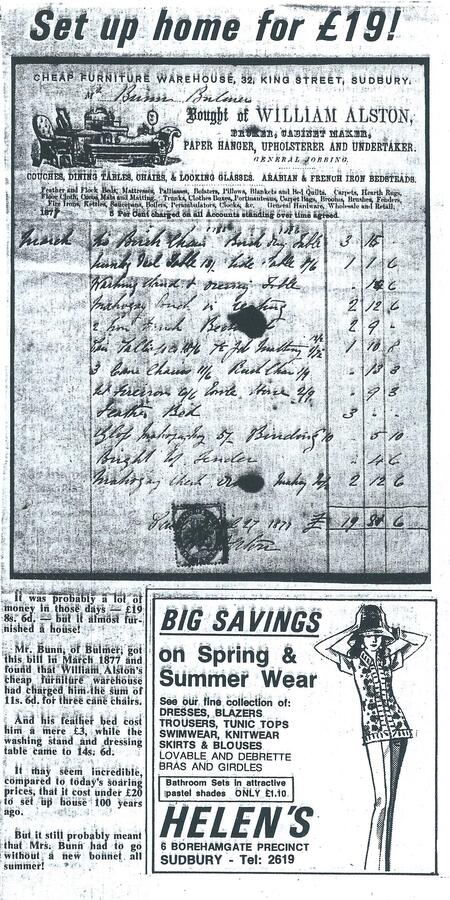 Set up home for £19!
CHEAP FURNITURE WAREHOUSE, 32, KING STREET, SUDBURY.
Mr. Bunn Bulmer
Bought of WILLIAM ALSTON,
BROKER, CABINET MAKER,
PAPER HANGER, UPHOLSTERER AND UNDERTAKER.
GENERAL JOBBING.
COUCHES, DINING TABLES, CHAIRS, & LOOKING GLASSES. ARABIAN & FRENCH IRON BEDSTEADS.
Feather and Flock Beds, Mattresses, Palliasses, Bolsters, Pillows, Blankets and Bed Quilts. Carpets, Hearth Rugs,
Floor Cloth, Cocoa Mats and Matting. Trunks, Clothes Boxes, Portmanteaus, Carpet Bags, Brooms, Brushes, Fenders,
Fire Irons, Kettles, Saucepans, Boilers, Perambulators, Clocks, &c. General Hardware, Wholesale and Retail.
187
5 Per Cent charged on all Accounts standing over time agreed
March Birch Chairs Table 3 15 -
Table Table 1 1 6
Washing Stand & Dressing Table 14 6
Mahogany Couch in 2 12 6
2 2 9 -
1 10 8
3 Cane Chairs 11/6 Rush Chair 13 3
9 3
Feather Bed 3 - -
Mahogany Binding 5 10
Bright Fender 4 6
Mahogany Chest 2 12 6
27 1877 £ 19 6
It was probably a lot of
money in those days — £19
8s. 6d. — but it almost fur-
nished a house!
Mr. Bunn, of Bulmer, got
this bill in March 1877 and
found that William Alston's
cheap furniture warehouse
had charged him the sum of
11s. 6d. for three cane chairs.
And his feather bed cost
him a mere £3, while the
washing stand and dressing
table came to 14s. 6d.
It may seem incredible,
compared to today's soaring
prices, that it cost under £20
to set up house 100 years
ago.
But it still probably meant
that Mrs. Bunn had to go
without a new bonnet all
summer!
BIG SAVINGS
on Spring &
Summer Wear
See our fine collection of:
DRESSES, BLAZERS
TROUSERS, TUNIC TOPS
SWIMWEAR, KNITWEAR
SKIRTS & BLOUSES
LOVABLE AND DEBRETTE
BRAS AND GIRDLES
Bathroom Sets in attractive
pastel shades ONLY £1.10
HELEN'S
6 BOREHAMGATE PRECINCT
SUDBURY - Tel: 2619